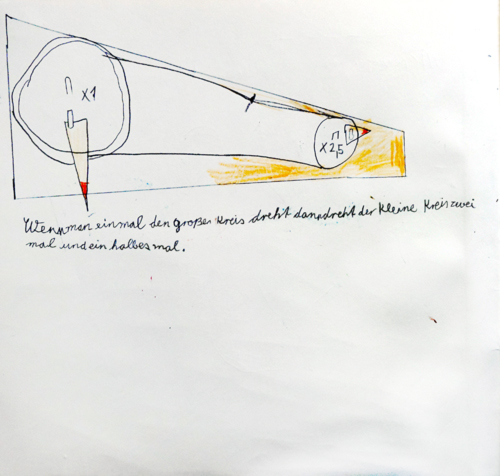 x1
x2,5
Wenn man einmal den großen Kreis dreht dann dreht der kleine Kreis zwei
mal und ein halbes mal.